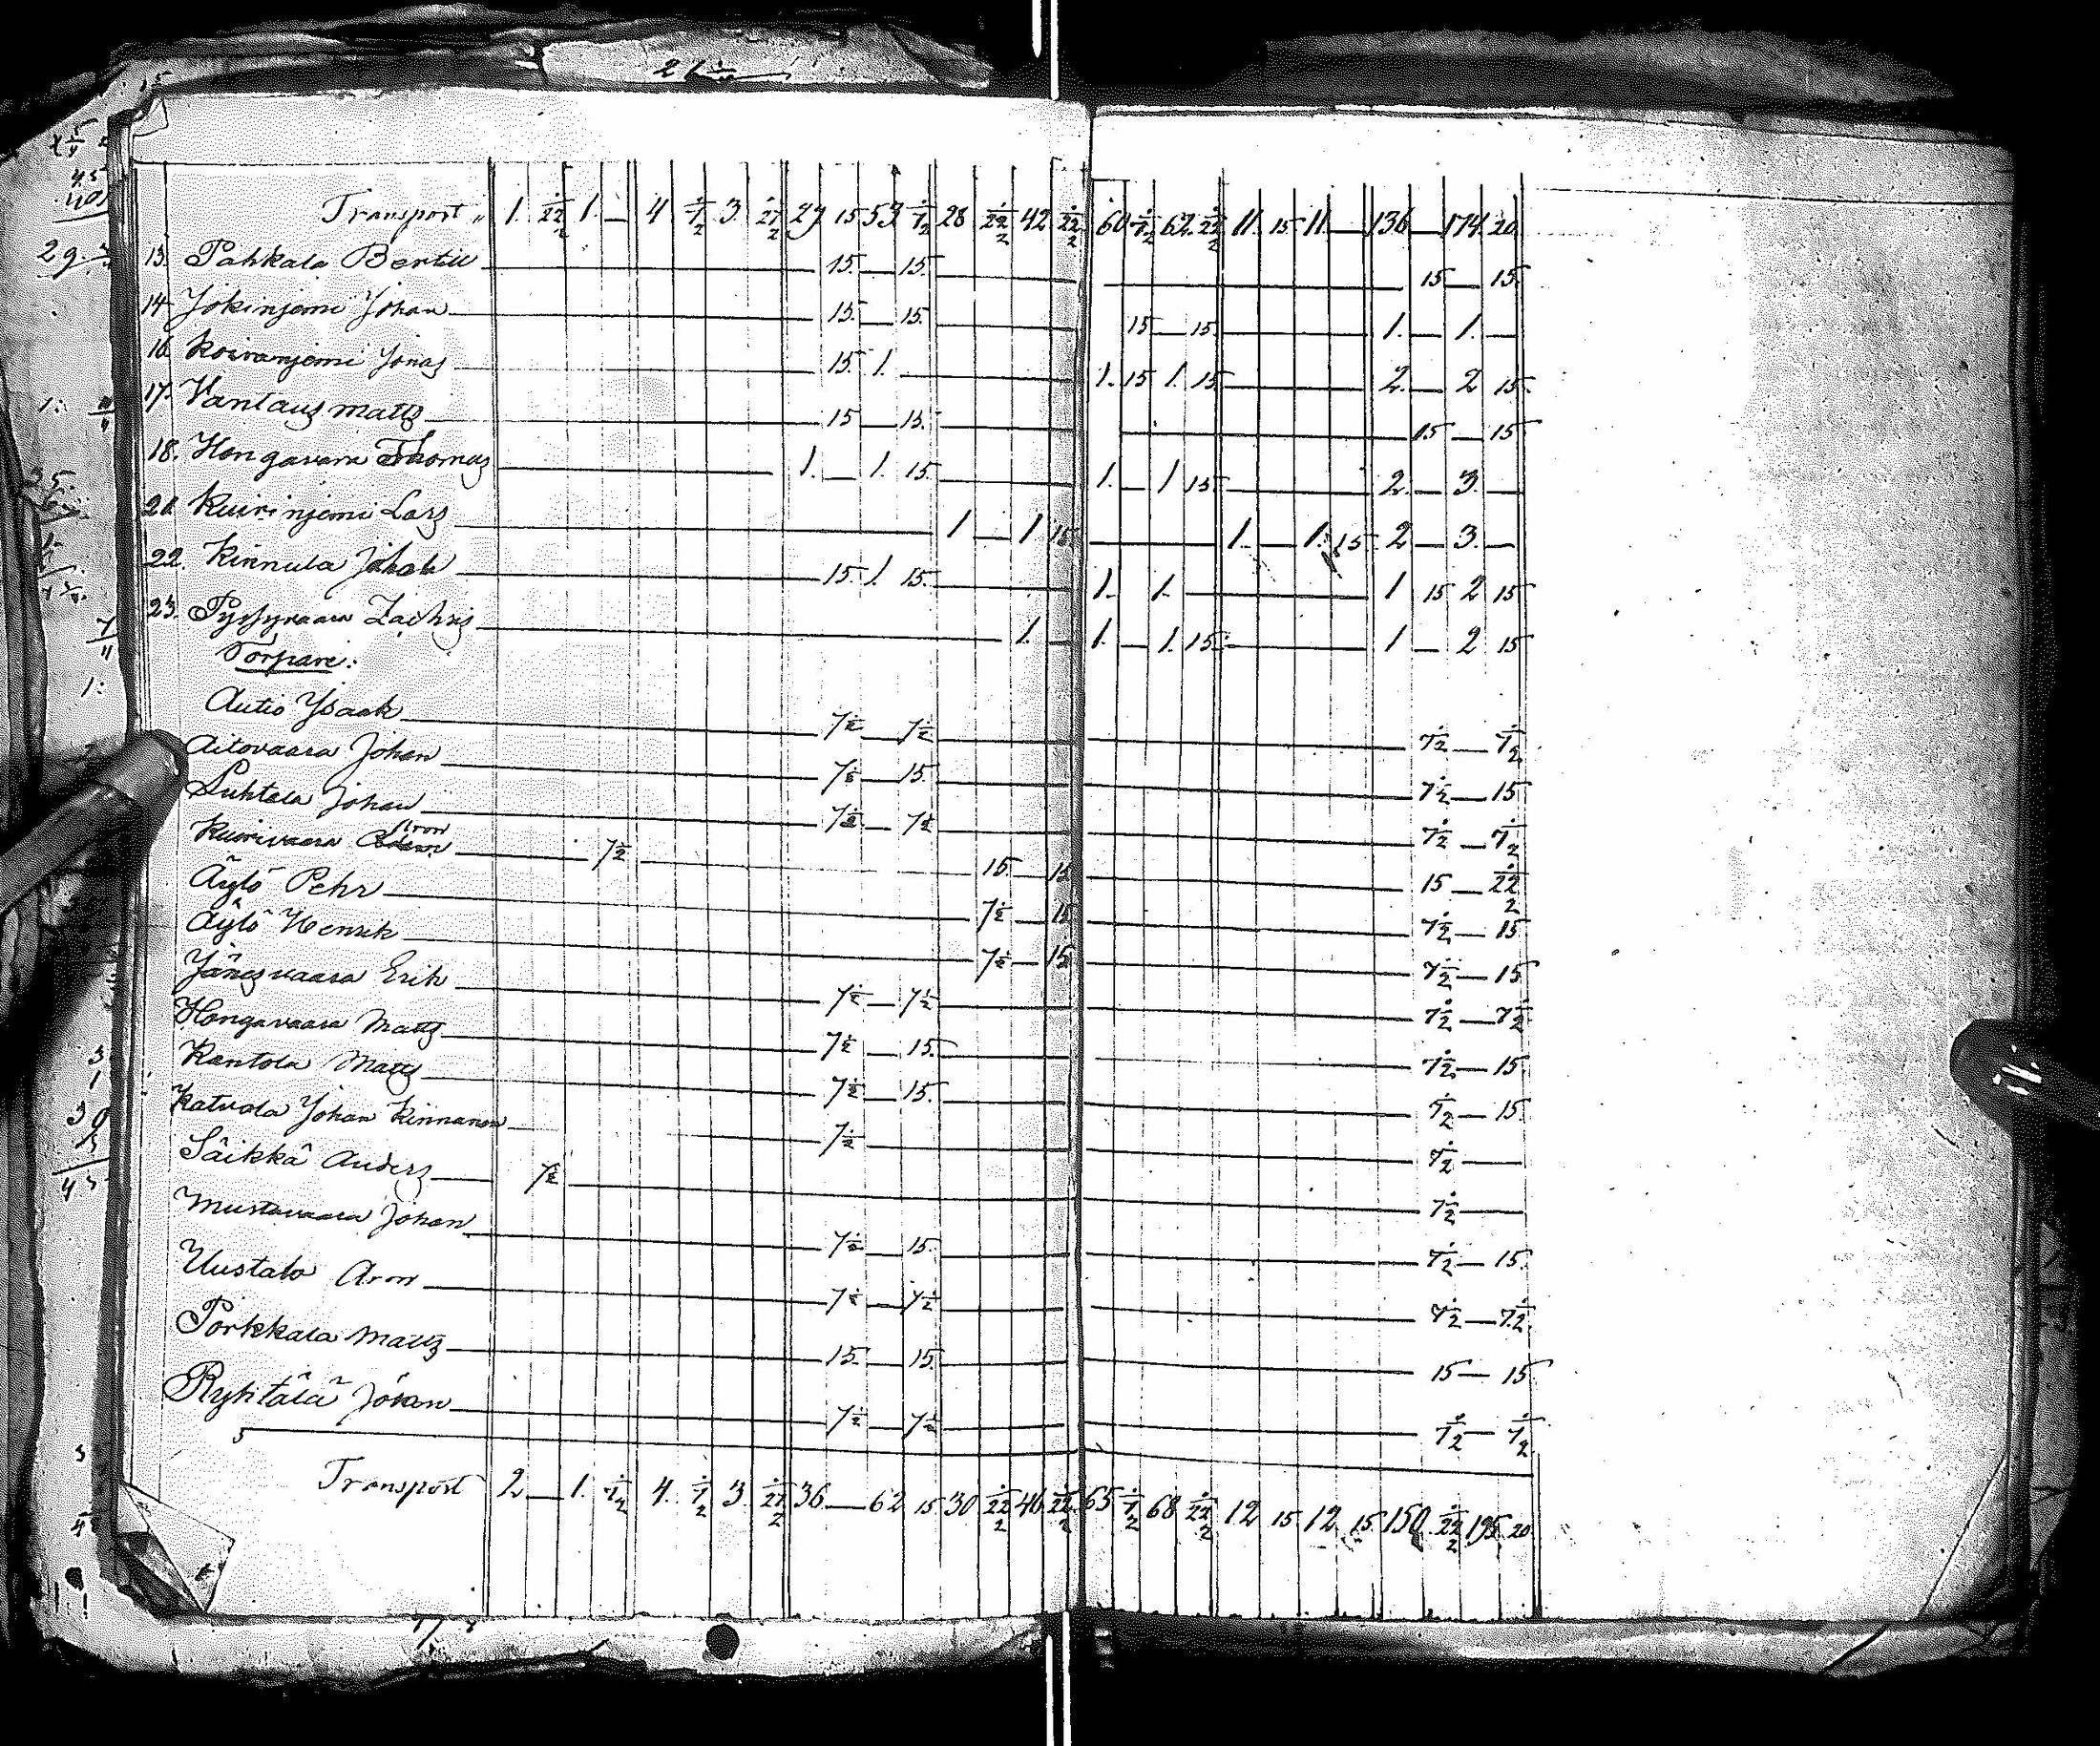 Transport " 1. 22½ 1. — 4 7½ 3. 22½ 29 15 53 7½ 28 22½ 42 22½ 60 7½ 62 22½ 11. 15 11 — 136 — 174 20
13. Pahkala Bertil — 15. — 15. — 15 — 15.
14 Jokinjemi Johan — 15. — 15. — 15 — 15. — 1. — 1. —
16. Koiranjemi Jonas — 15 1. — 1. 15 1. 15 — 2. — 2 15.
17. Vantaus Matts — 15 — 15. — 15 — 15
18. Hongavara Thomas — 1. — 1. 15. — 1. — 1 15 — 2. — 3. —
20. Kuirinjemi Lars — 1 — 1 15 — 1. — 1. 15 2 — 3. —
22. Kinnula Johan — 15. 1. 15. — 1. 1. — 1 15 2 15
23. Pyssyvaara Zachris — 1. — 1. — 1. 15. — 1 — 2 15
Torpare:
Autio Ysaak — 7½ — 7½ — 7½ — 7½
Aitovaara Johan — 7½ — 15. — 7½ — 15
Luhtala Johan — 7½ — 7½ — 7½ — 7½
Kuorivaara Aron — 7½ 15. — 15 — 15 — 22½
Äylö Pehr — 7½ — 15 — 7½ — 15
Äylö Henrik — 7½ — 15 — 7½ — 15
Jängsvaara Erik — 7½ — 7½ — 7½ — 7½
Hongavaara Matts — 7½ — 15. — 7½ — 15
Rantola Matts — 7½ — 15. — 7½ — 15.
Katvala Johan Kinnanen — 7½ — 7½ —
Säikkä Anders — 7½ — 7½ —
Mustavaara Johan — 7½ — 15. — 7½ — 15.
Uustalo Aron — 7½ — 7½ — 7½ — 7½
Porkkala Matts — 15. — 15. — 15 — 15
Ryhtälä Johan — 7½ — 7½ — 7½ — 7½
Transport 2 — 1. 7½ 4. 7½ 3. 22½ 36 — 62 15 30 22½ 46 22½ 65 7½ 68 22½ 12 15. 12 15. 150 22½ 195 20